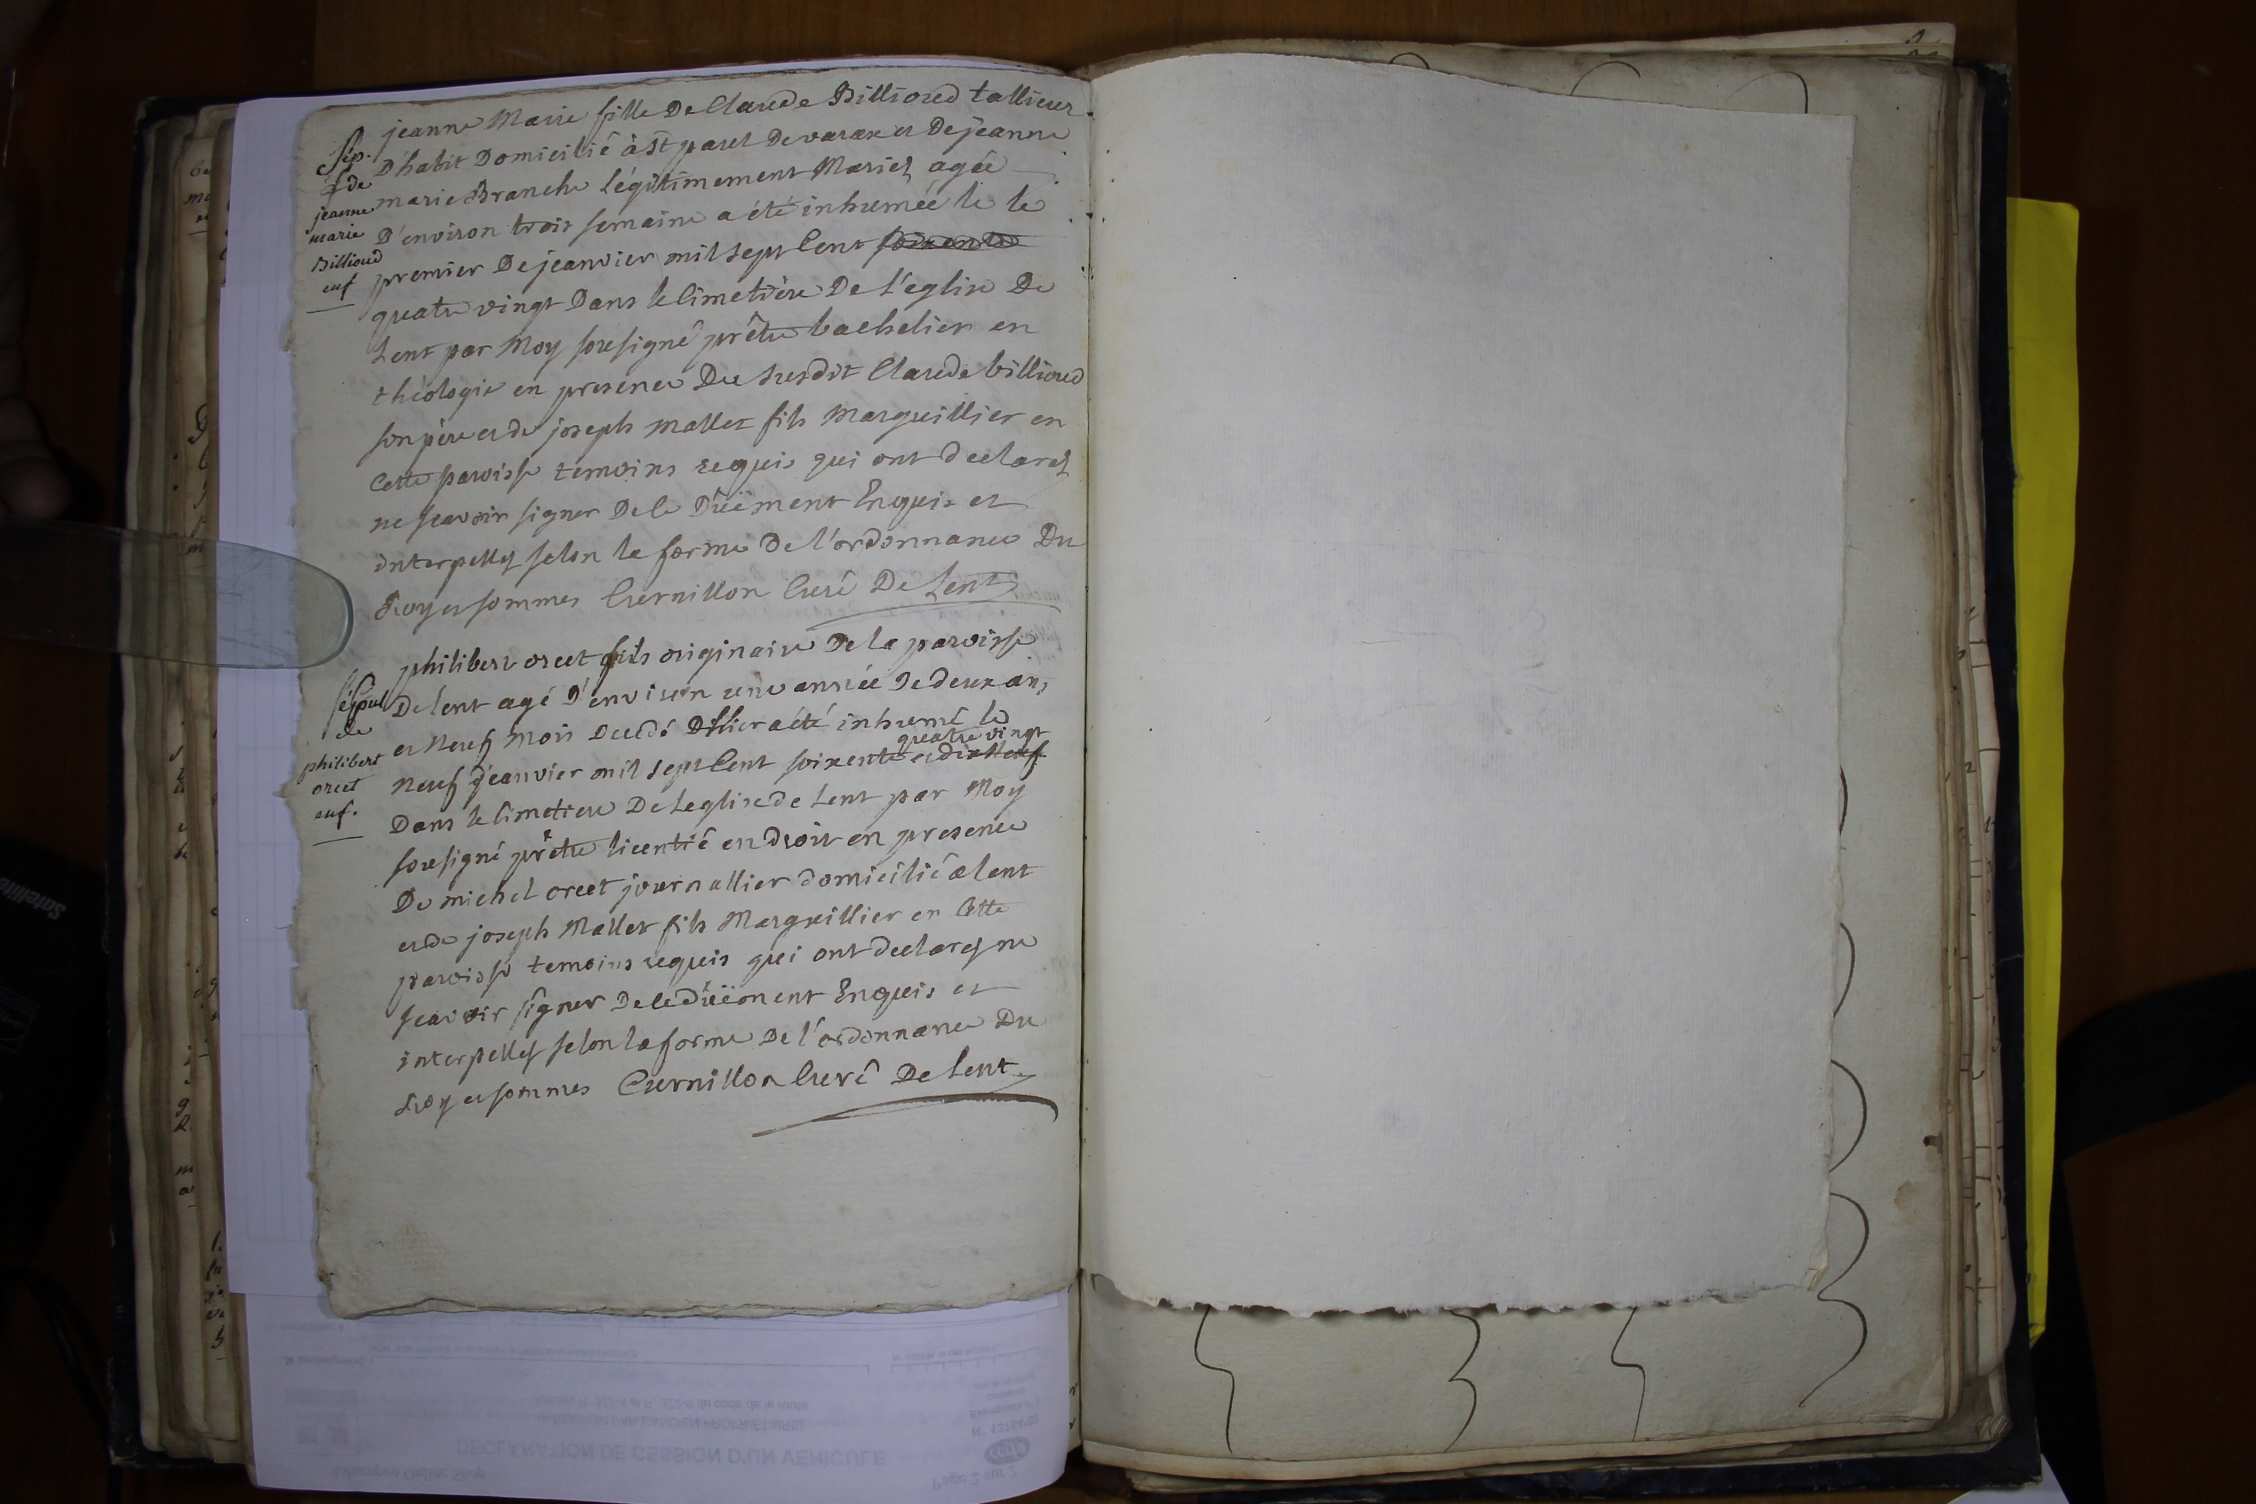 Sep.
de
jeanne
marie
Billioud
enf
jeanne Marie fille De Claude Billioud tallieur
D'habit Domicilié à St paul De varax et De jeanne
marie Branche légitimement Mariez agée
D'environ trois semaine a été inhumée le le
premier De jeanvier mil sept Cent soixante
quatre vingt Dans le Cimetière De l'église De
Lent par Moy sousigné prêtre bachelier en
théologie en presence Du susdit Claude billioud
son père et de joseph mallet fils Marguillier en
Cette paroisse temoins requis qui ont declarez
ne scavoir signer De ce Düëment Enquis et
interpellez selon la forme De l'ordonnance Du
Roy et sommes Cuernillon Curé De Lent
Sepul
de
philibert
orcet
enf.
philibert orcet fils originaire De la paroisse
De lent agé D'environ une année De deux ans
et Neuf mois Decedé D'hier a été inhumé le
quatre vingt
Neuf jeanvier mil sept Cent soixente et dix Neuf
Dans le Cimetiere De Leglise de Lent par Moy
sousigné prêtre licentié en droit en presence
De michel orcet journallier domicilié a lent
et de joseph Mallet fils Marguillier en Cette
paroisse temoins requis qui ont declarez ne
scavoir signer De ce düëment Enquis et
interpellez selon la forme De l'ordonnance Du
Roy et sommes Cuernillon Curé De Lent
DECLARATION DE CESSION D'UN VEHICULE
Page 2 sur 2
Satellite